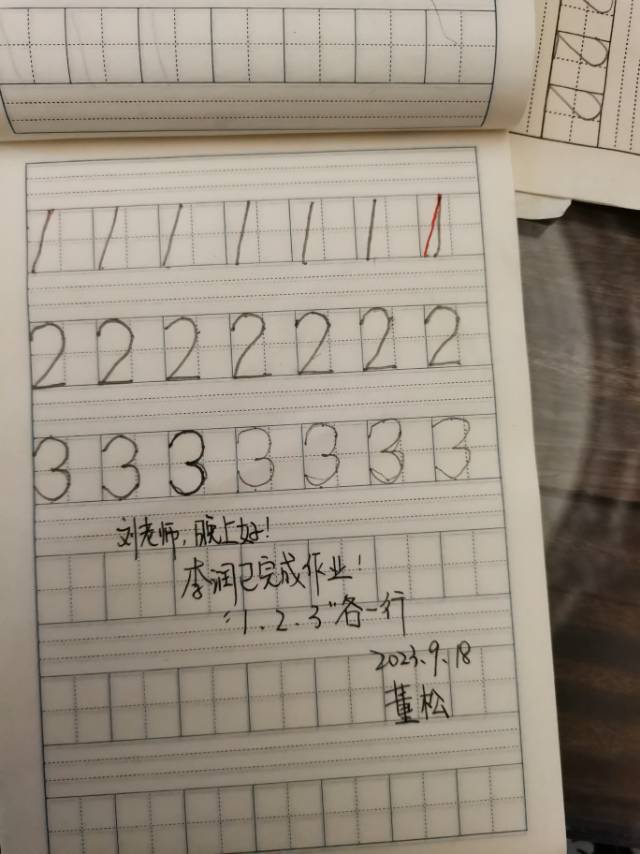 1 1 1 1 1 1 1
2 2 2 2 2 2 2
3 3 3 3 3 3 3
刘老师,晚上好!
李润已完成作业!
“1、2、3”各一行
2023.9.18
董松